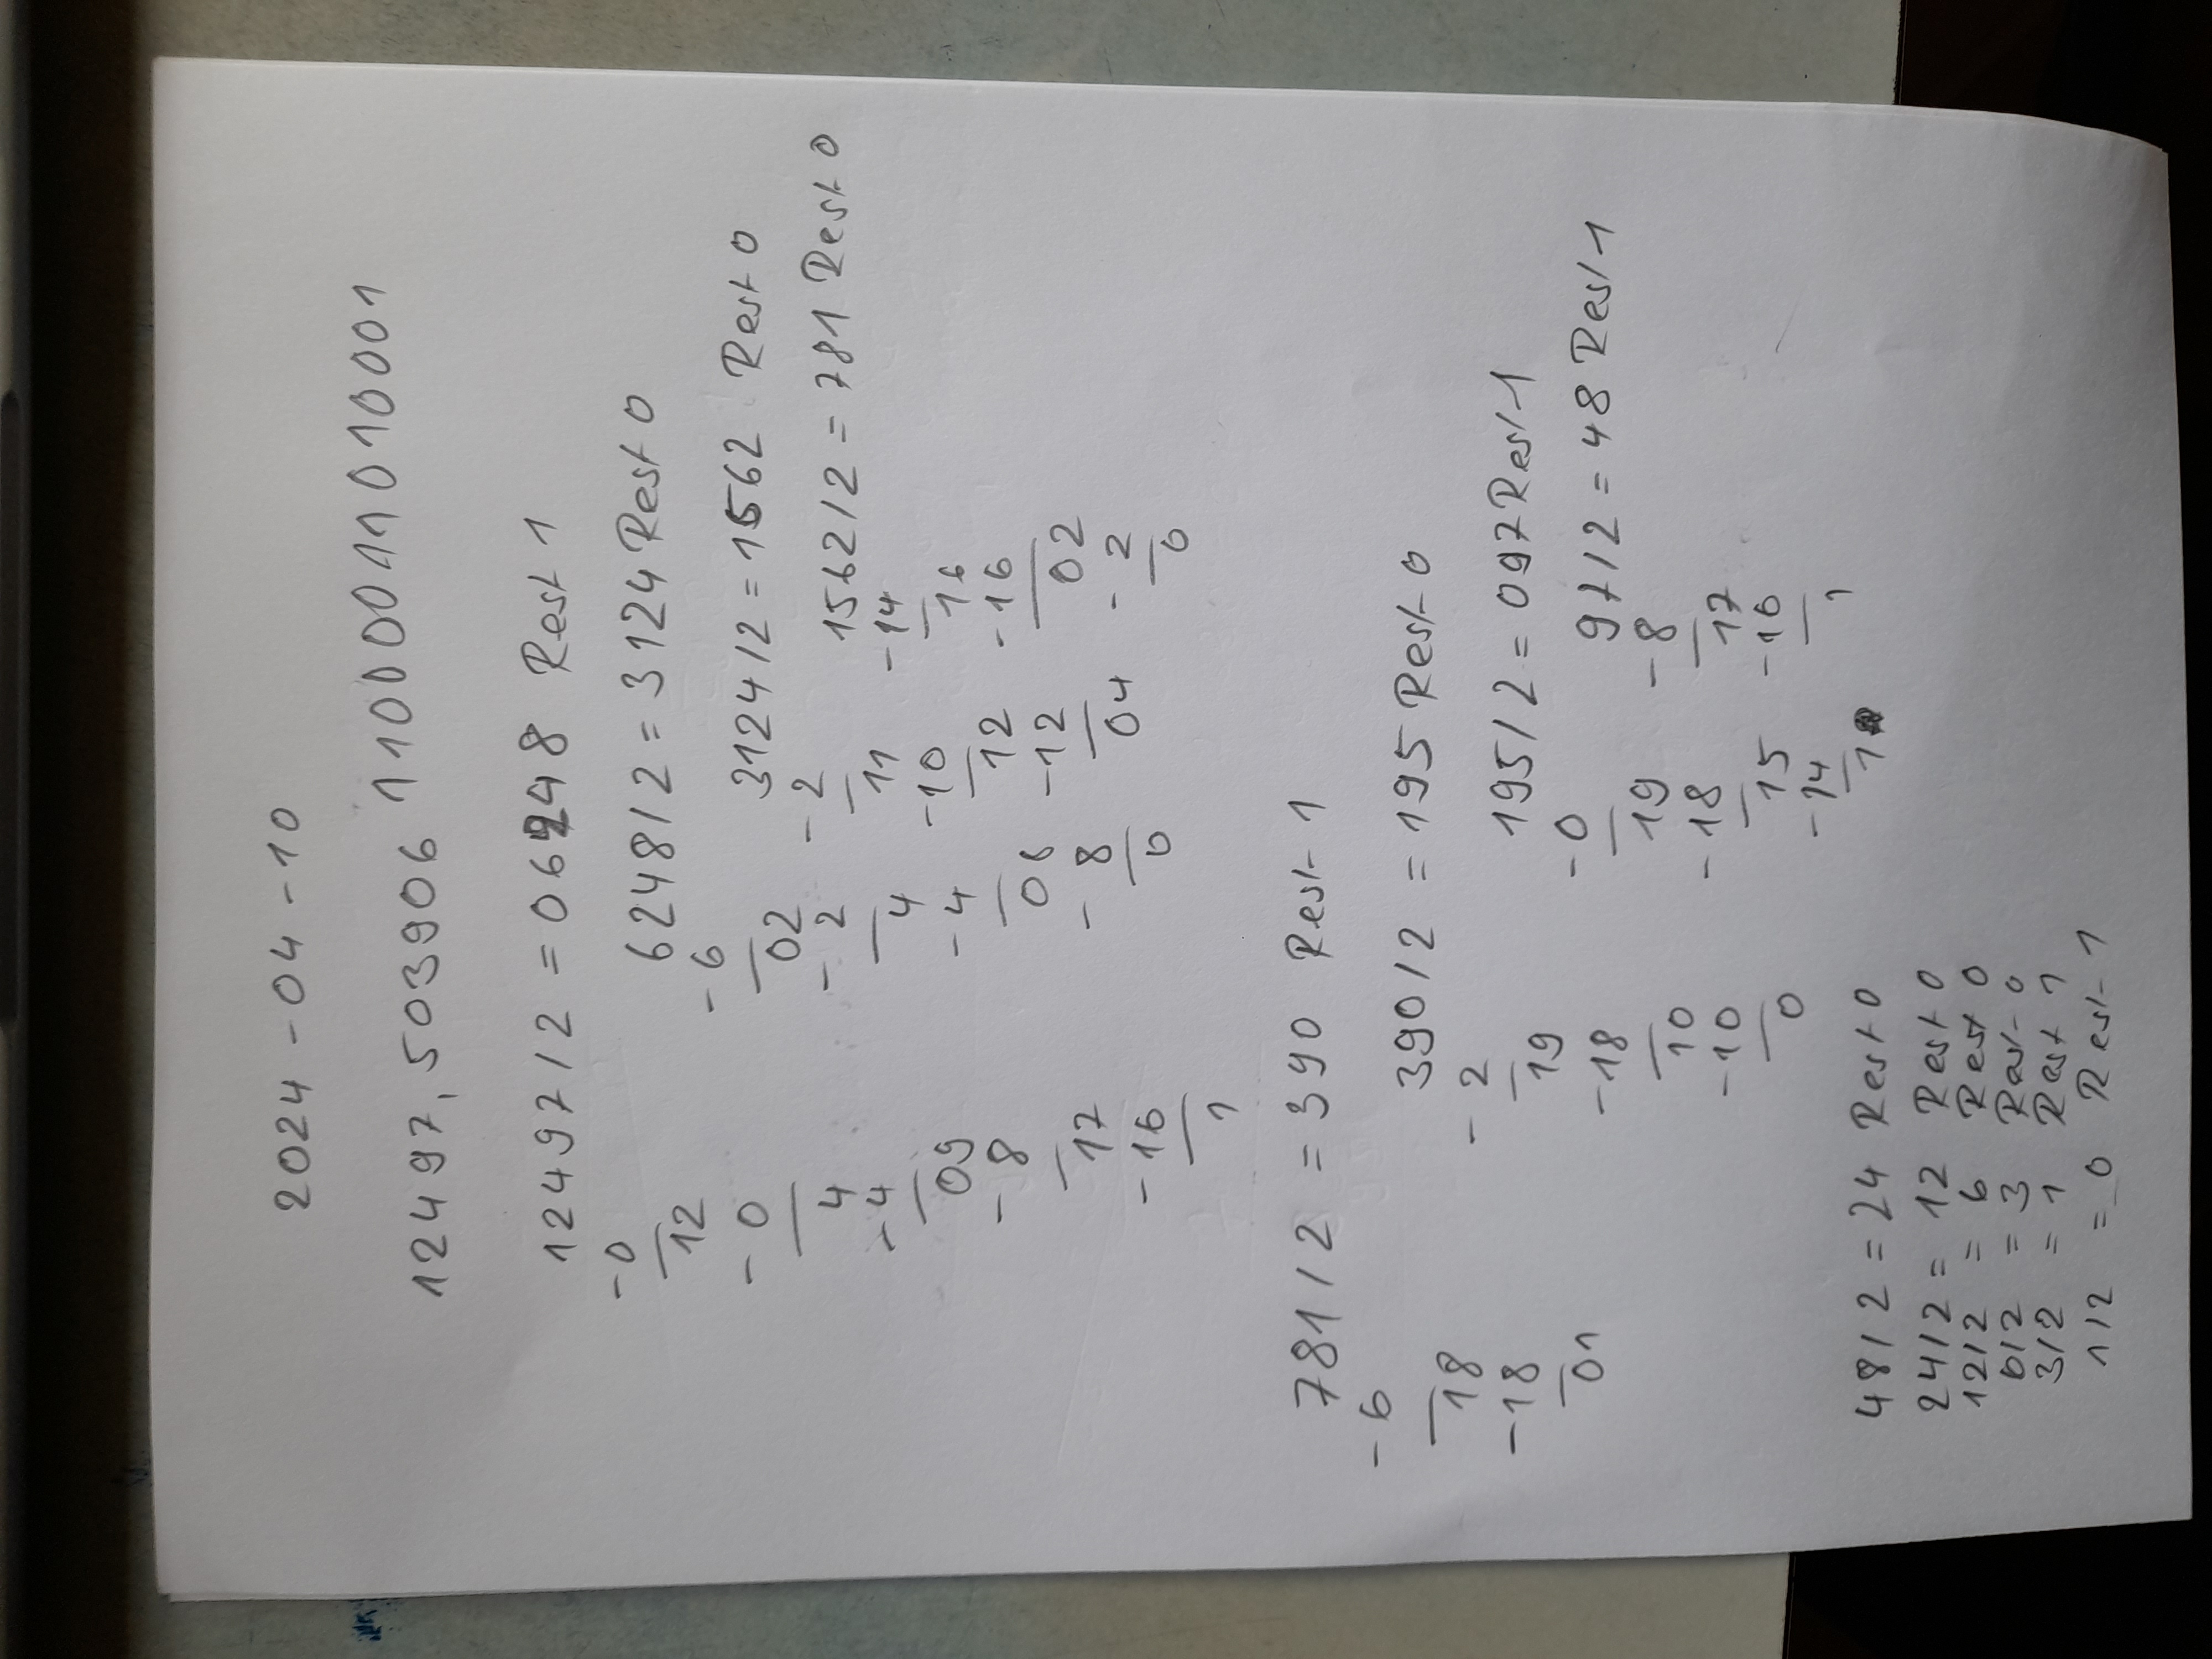 2024-04-10
12497,503906 11000011010001
12497/2 = 06248 Rest 1
-0
12
-0
4
-4
09
-8
17
-16
1
6248/2 = 3124 Rest 0
-6
02
-2
4
-4
08
-8
0
3124/2 = 1562 Rest 0
-2
11
-10
12
-12
04
1562/2 = 781 Rest 0
-14
16
-16
02
-2
0
781/2 = 390 Rest 1
-6
18
-18
01
390/2 = 195 Rest 0
-2
19
-18
10
-10
0
195/2 = 097 Rest 1
-0
19
-18
15
-14
1
97/2 = 48 Rest 1
-8
17
-16
1
48/2 = 24 Rest 0
24/2 = 12 Rest 0
12/2 = 6 Rest 0
6/2 = 3 Rest 0
3/2 = 1 Rest 1
1/2 = 0 Rest 1